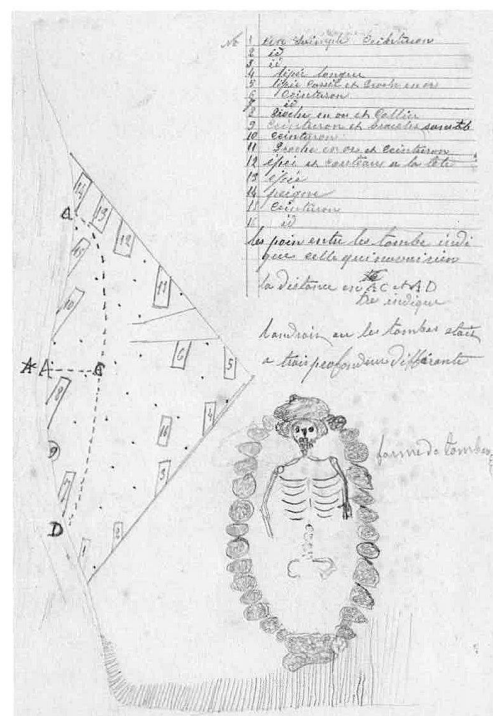 No 1 un simple Ceinturon
2 id
3 id
4 épée longue
5 épée Cassée et Broch en or
6 Ceinturon
7 id
8 Broche en or et Collier
9 Ceinturon et bracelet
10 Ceinturon
11 Broche en or et Ceinturon
12 épée et couteau a la tête
13 épée
14 peigne
15 Ceinturon
16 id
les poin entre les tombe indi
que celle qui
la distance en AC et AD
indique
landroit ou les tombes etait
a trois profondeur differante
forme de tombes
14
A
13
12
15
11
10
6
5
A
C
8
4
16
9
3
7
D
2
1